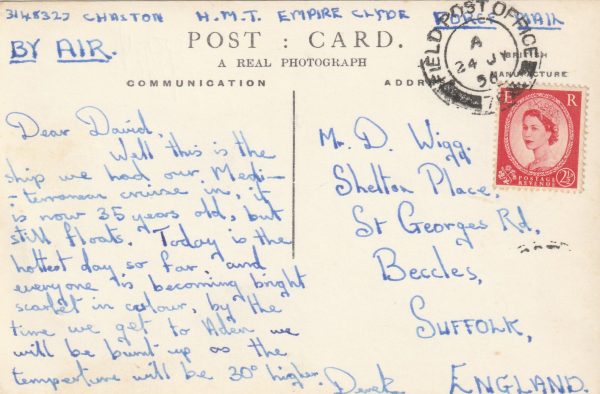 3148327 CHASTON H.M.T. EMPIRE CLYDE FORCES MAIL
BY AIR.
POST : CARD.
A REAL PHOTOGRAPH
BRITISH
MANUFACTURE
COMMUNICATION
ADDRESS
FIELD POST OFFICE
A
24 JY
56
E R
POSTAGE
REVENUE
2½D
Dear David,
Well this is the
ship we had our Medi-
-terranean cruise in, it
is now 35 years old, but
still floats. Today is the
hottest day so far and
everyone is becoming bright
scarlet in colour, by the
time we get to Aden we
will be burnt up as the
temperture will be 30° higher.
Derek
Mr. D. Wigg.
Shelton Place,
St Georges Rd,
Beccles,
SUFFOLK,
ENGLAND.